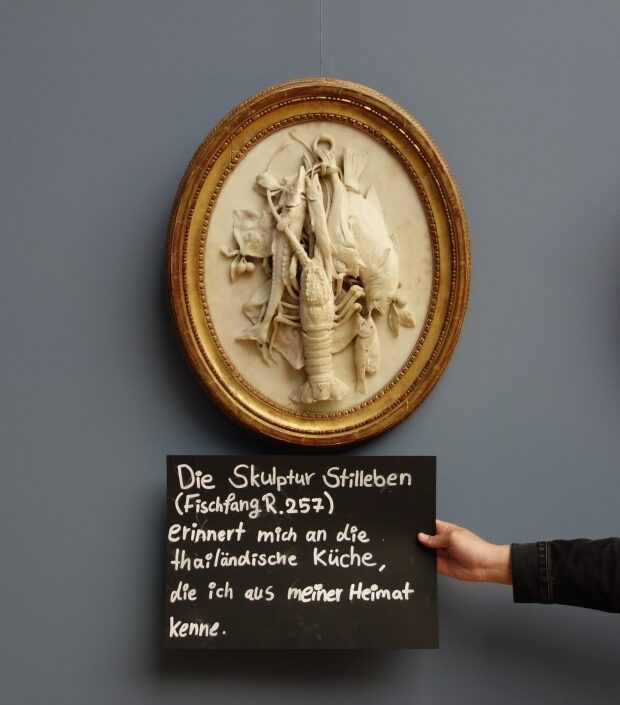 Die Skulptur Stilleben
(Fischfang R. 257)
erinnert mich an die
thailändische Küche,
die ich aus meiner Heimat
kenne.